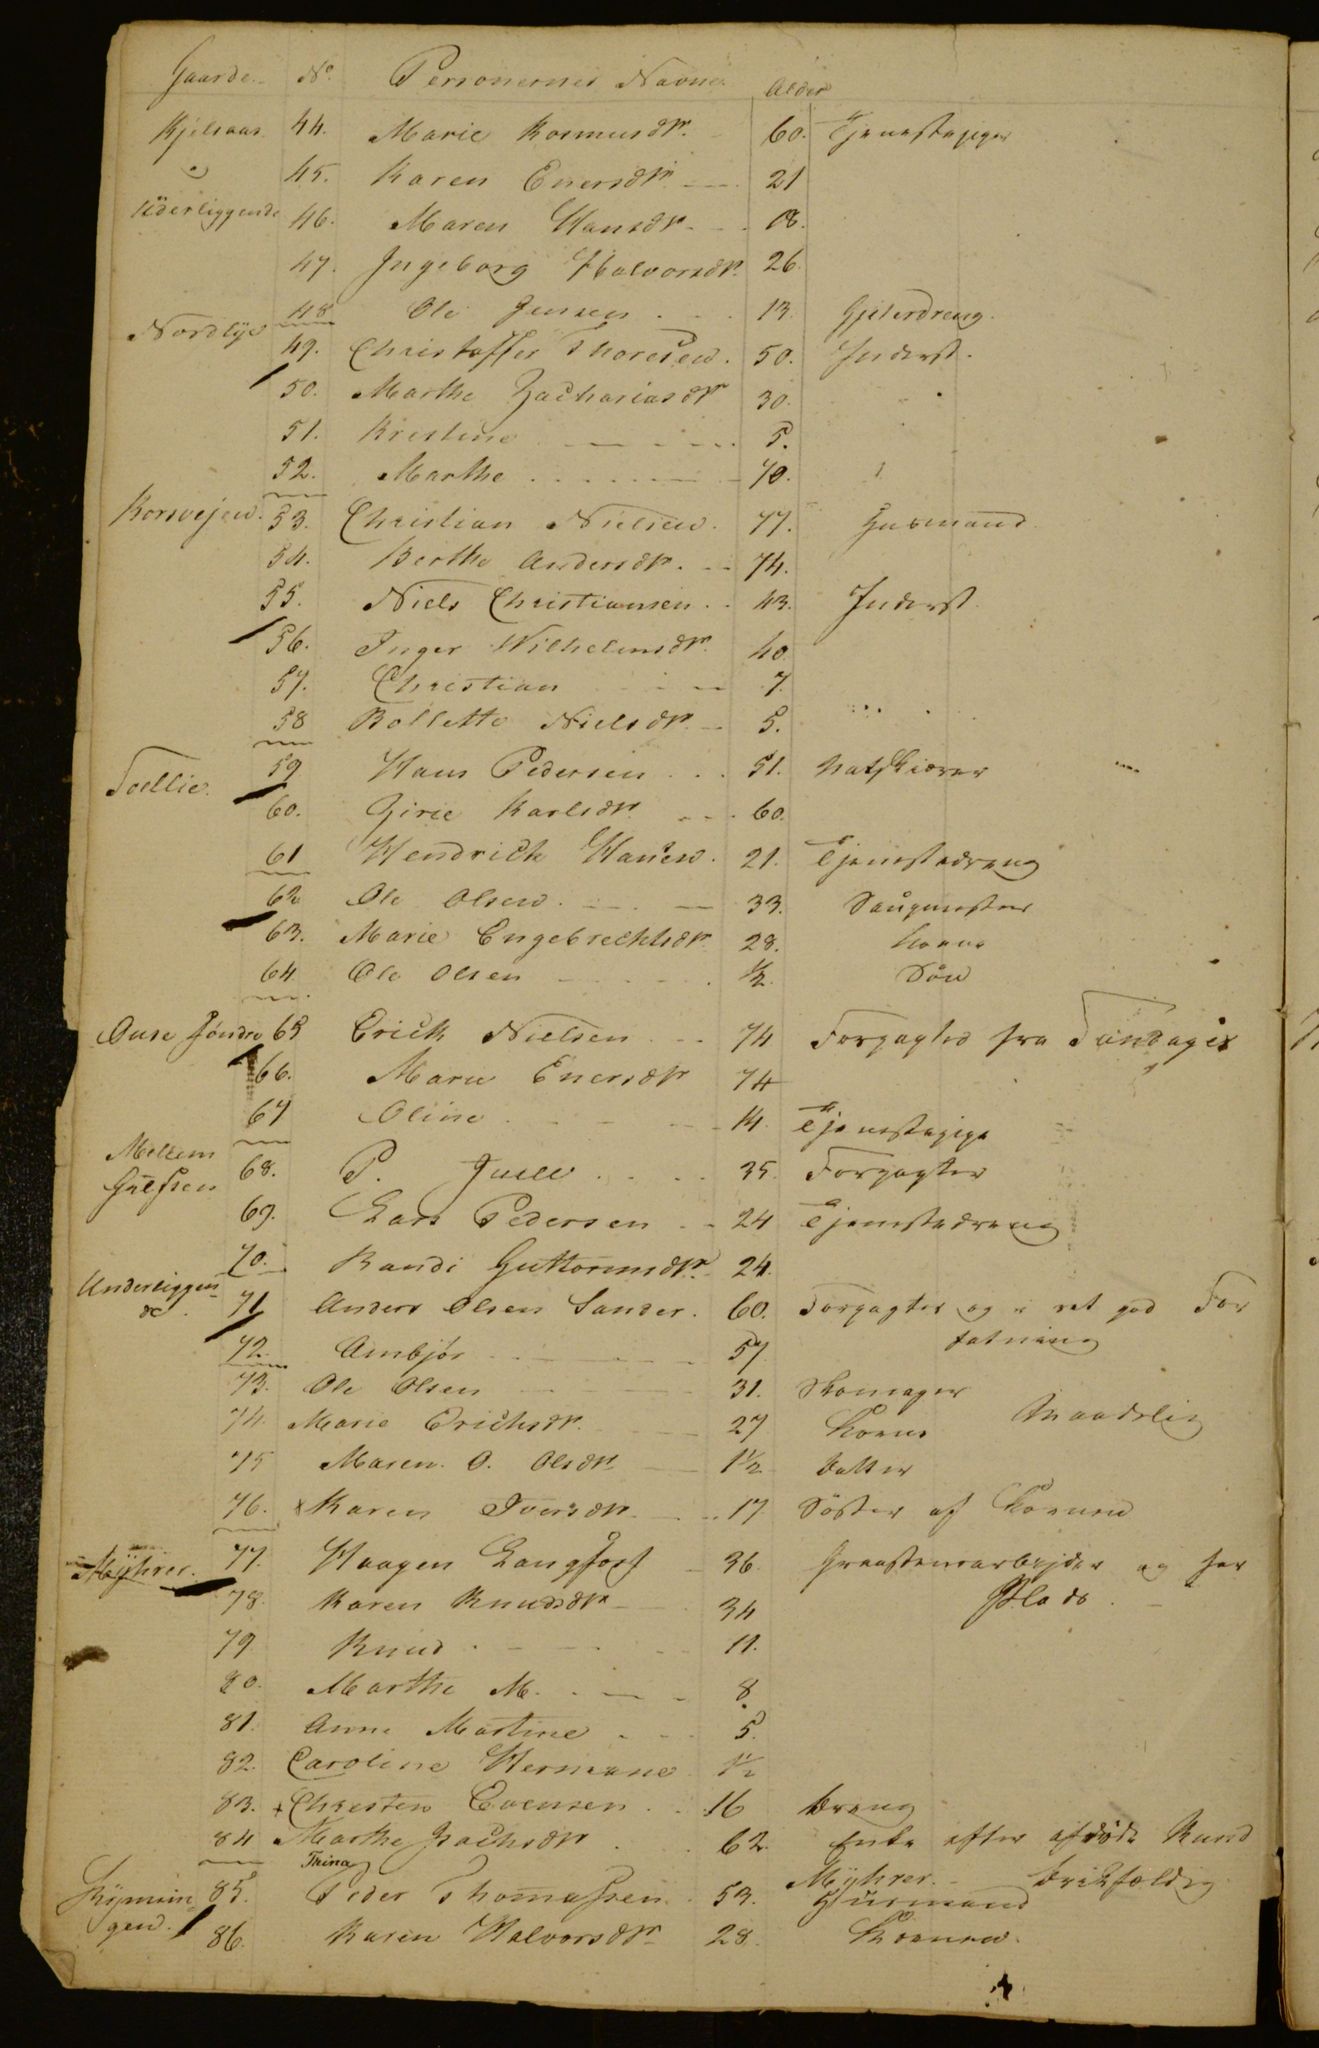 Gaarde. No. Personernes Navne. Alder
Kjelsaas 44. Marie Rasmusdtr. 60. Tjenestepiger
45. Karen Enersdtr. 21
Uderliggende 46. Maren Hansdtr. 18.
47. Ingeborg Halvorsdtr. 26.
48 Ole Jensen 13. Gjeterdreng.
Nordbye 49. Christoffer Thoresen. 50. Inderst.
50. Marthe Zachariasdtr 30.
51. Kristine 5.
52. Marthe 70.
Korsvejen. 53. Christian Nielsen. 77. Huusmand
54. Berthe Andersdtr. 74.
55. Niels Christiansen. 43. Inderst
56. Inger Wilhelmsdtr. 40.
57. Christian 7.
58 Bollette Nielsdtr. 5.
Toellie. 59 Hans Pedersen 51.
60. Girie Karlsdtr. 60.
61 Hendrich Hansen. 21. Tjenestedreng
62 Ole Olsen. 33. Saugmester
63. Marie Engebrechtsdtr. 28. Kone
64 Ole Olsen 1/2. Søn
Søndre 65 Erich Nielsen 74 Forpagter fra
66. Maren Enersdtr 74
67 Oline 14. Tjenestepige
Mellem
68. P. Juell 35. Forpagter
69. Lars Pedersen 24 Tjenestedreng
70. Randi Guttormsdtr. 24.
Underliggen-
de. 71 Anders Olsen Sander. 60. Forpagter og i ret god For
fatning
72. Ambjør 57
73. Ole Olsen 31. Skomager
Maadelig
74. Marie Erichsdtr. 27 Kone
75 Maren. O. Olsdtr 1 1/2 Datter
76. x Karen Iversdtr. 17 Søster af Konen
Myhrer. 77. Haagen Langfos 36. Graastensarbejder og har
Plads.
78. Karen Knudsdtr 34
79 Knud 11.
80. Marthe M. 8.
81. Anne Martine 5.
82. Caroline Hermane 1 1/2
83. + Christen Evensen 16 Dreng
84 Marthe Zachsdtr. 62. Enke efter afdøde Knud
Myhrer.
Thina
85. Peder Thomassen 53. Huusmand
gen. 86. Karen Halvorsdtr 28. Konen.